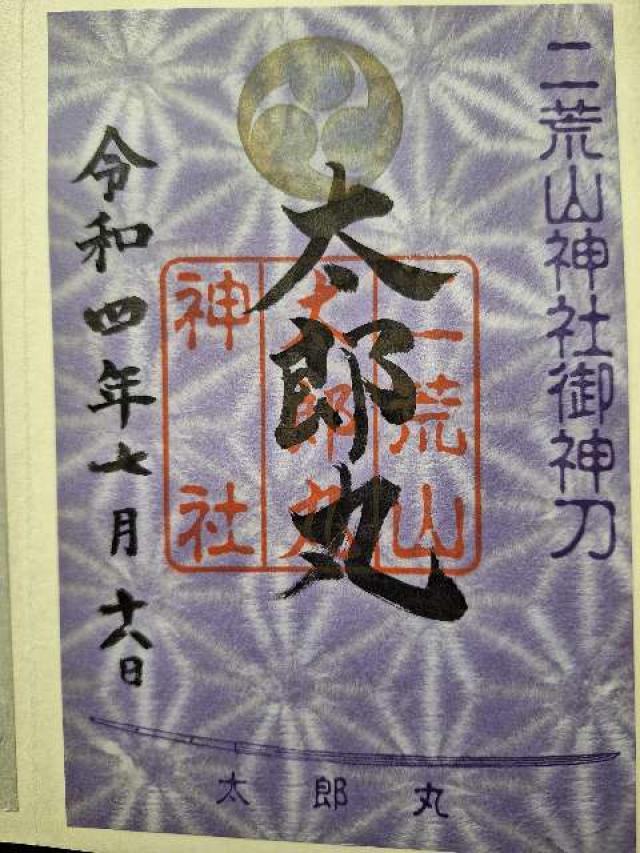 二荒山神社御神刀
太郎丸
二荒山
太郎丸
神社
令和四年七月十六日
太郎丸